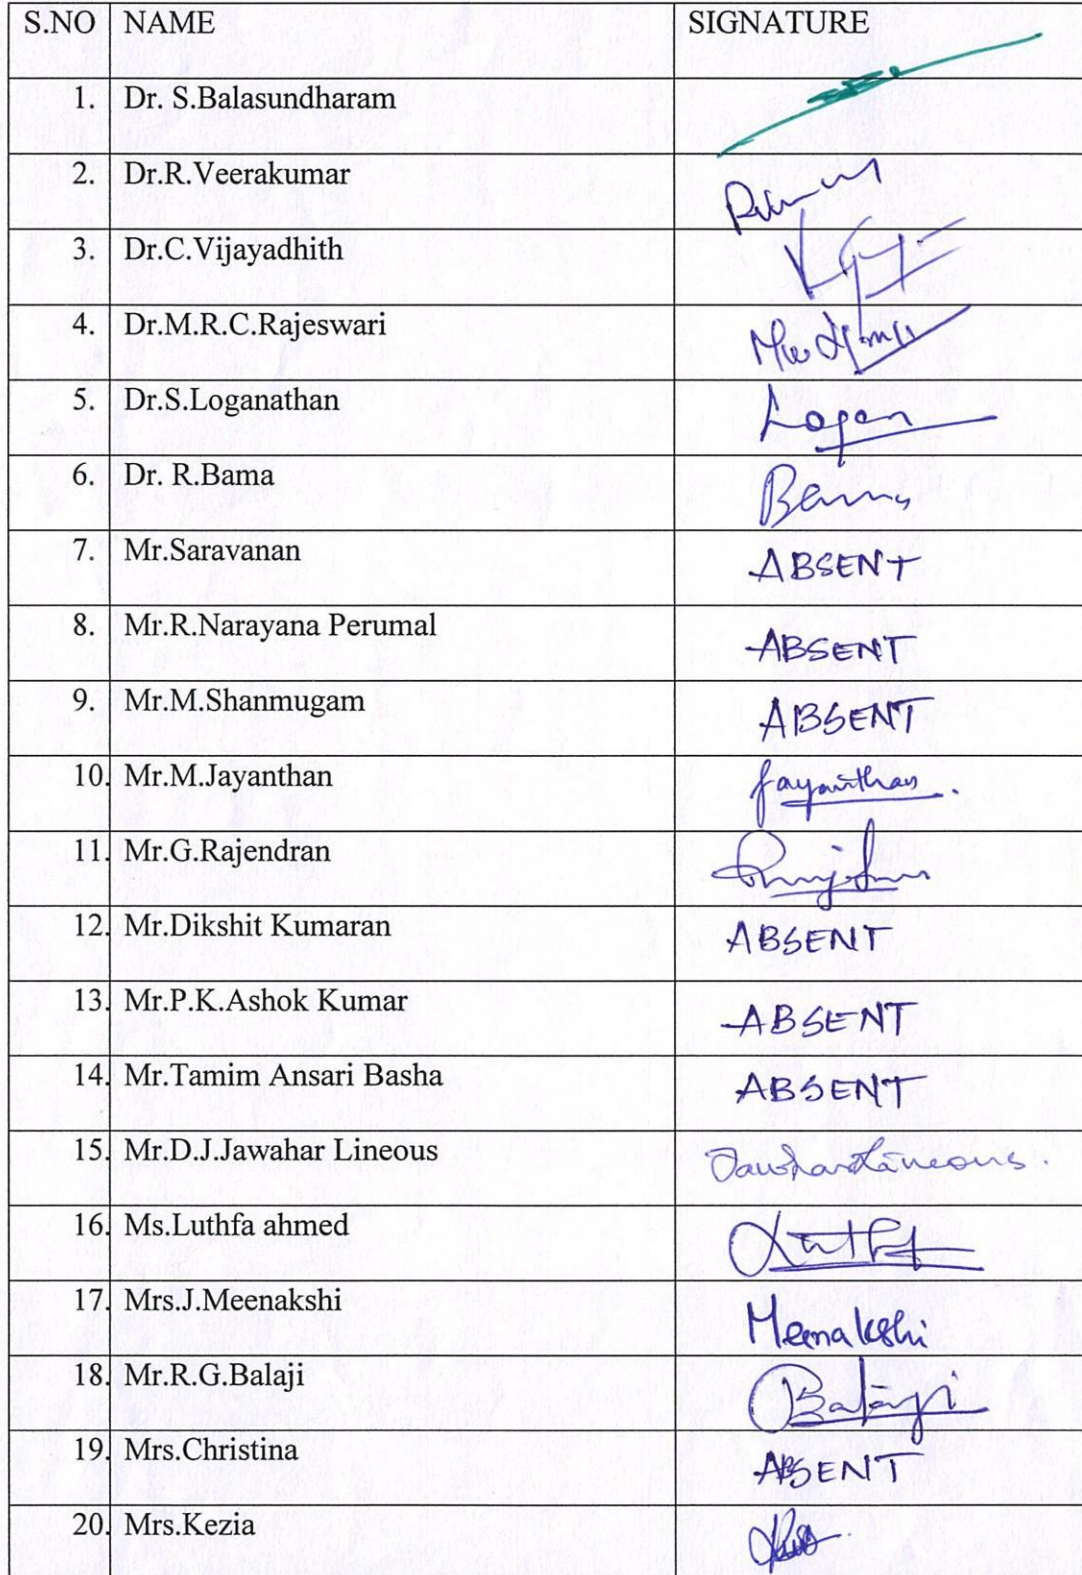 S.NO NAME SIGNATURE
1. Dr. S.Balasundharam
2. Dr.R.Veerakumar
3. Dr.C.Vijayadhith
4. Dr.M.R.C.Rajeswari
5. Dr.S.Loganathan Logan
6. Dr. R.Bama Bama
7. Mr.Saravanan ABSENT
8. Mr.R.Narayana Perumal ABSENT
9. Mr.M.Shanmugam ABSENT
10. Mr.M.Jayanthan Jayanthan.
11. Mr.G.Rajendran
12. Mr.Dikshit Kumaran ABSENT
13. Mr.P.K.Ashok Kumar ABSENT
14. Mr.Tamim Ansari Basha ABSENT
15. Mr.D.J.Jawahar Lineous
16. Ms.Luthfa ahmed
17. Mrs.J.Meenakshi Meenakshi
18. Mr.R.G.Balaji Balaji
19. Mrs.Christina ABSENT
20. Mrs.Kezia